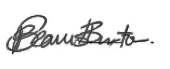 Beau Burton.